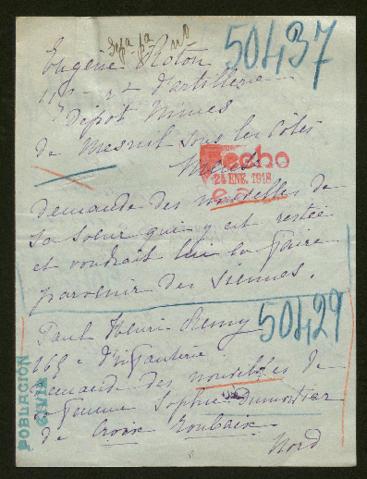 50437
Eugène Roton
d'artillerie
Dépôt Nimes
de Mesnil sous les Côtes
Meuse
echo
24 ENE. 1918
demande des nouvelles de
sa soeur qui y est restée
et voudrait lui faire
parvenir des siennes.
50429
Paul Henri Remy
165e d'infanterie
demande des nouvelles de
sa femme Sophie Dumortier
de Croix Roubaix
Nord
POBLACIÓN
CIVIL